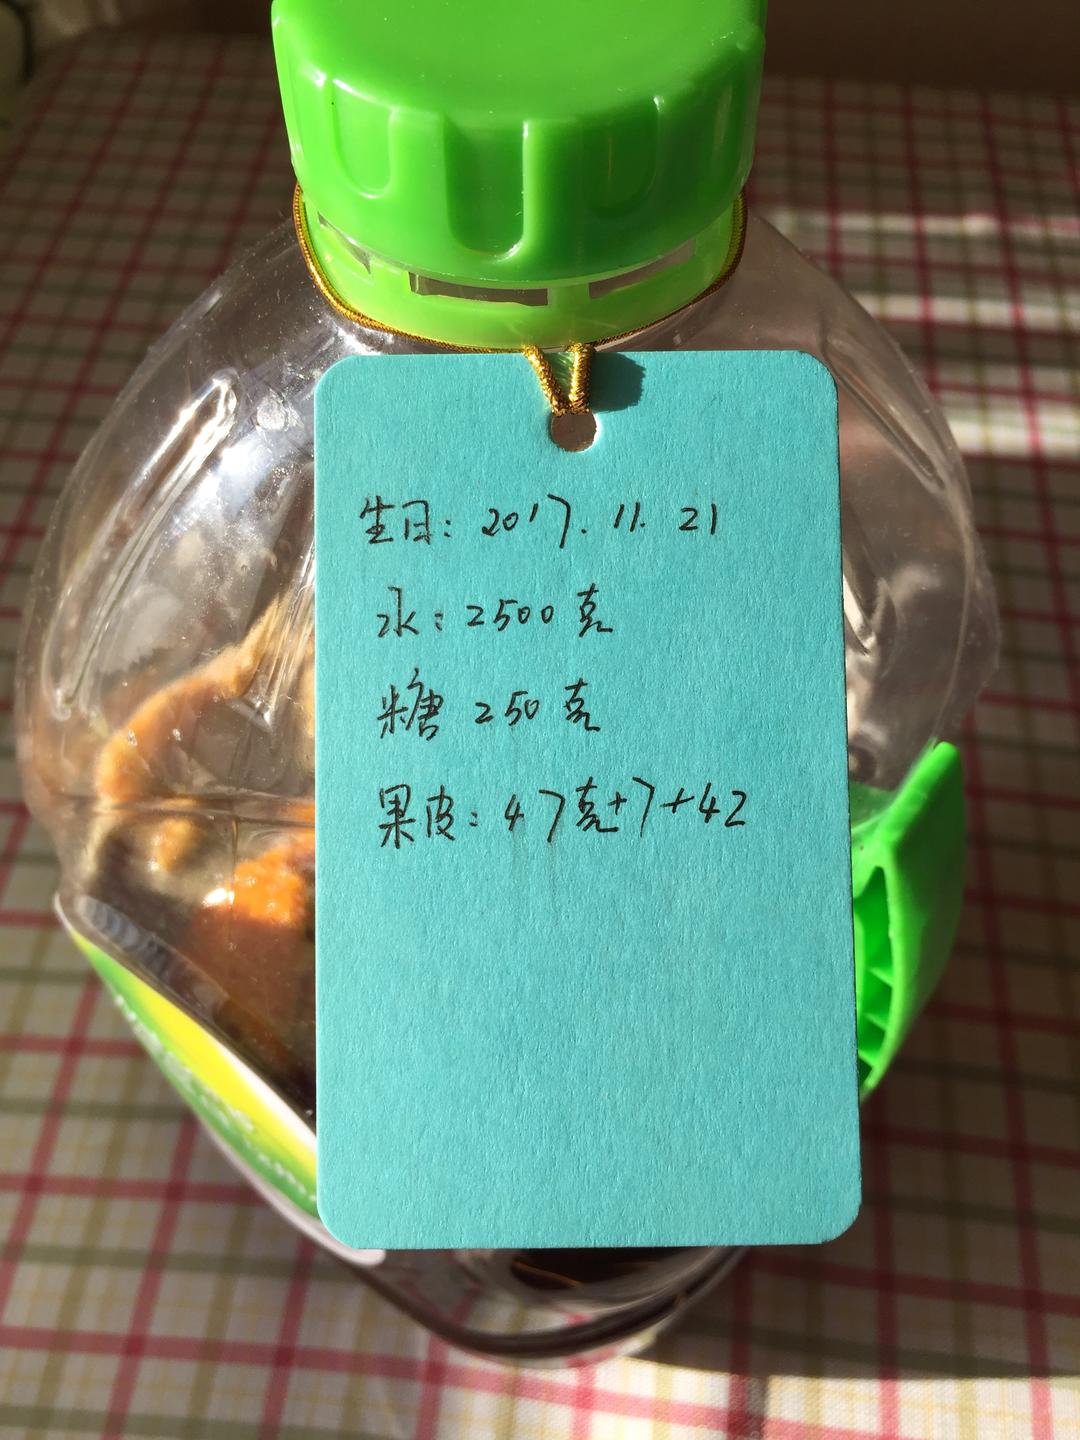 生日: 2017. 11. 21
水: 2500 克
糖 250 克
果皮: 47克+7+42